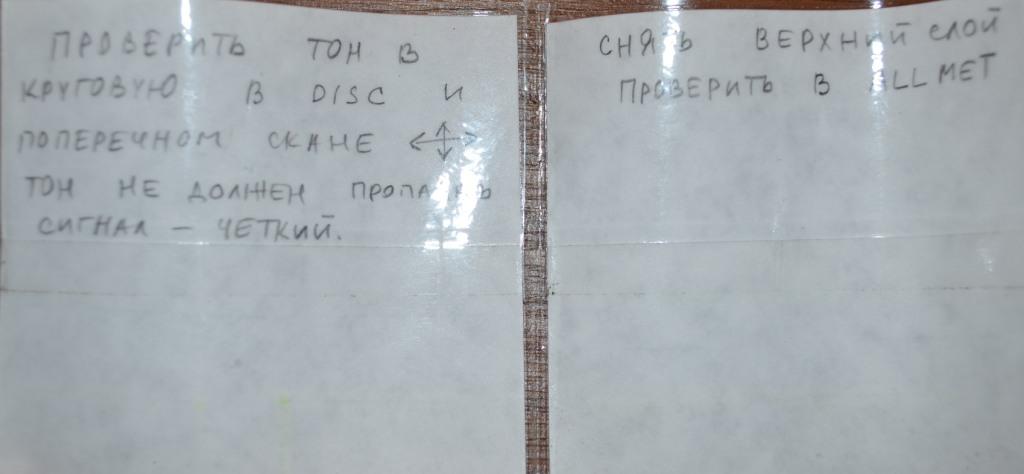 ПРОВЕРИТЬ ТОН В
КРУГОВУЮ В DISC И
ПОПЕРЕЧНОМ СКАНЕ
ТОН НЕ ДОЛЖЕН ПРОПАДАТЬ
СИГНАЛ – ЧЕТКИЙ.
СНЯТЬ ВЕРХНИЙ СЛОЙ
ПРОВЕРИТЬ В ALL MET